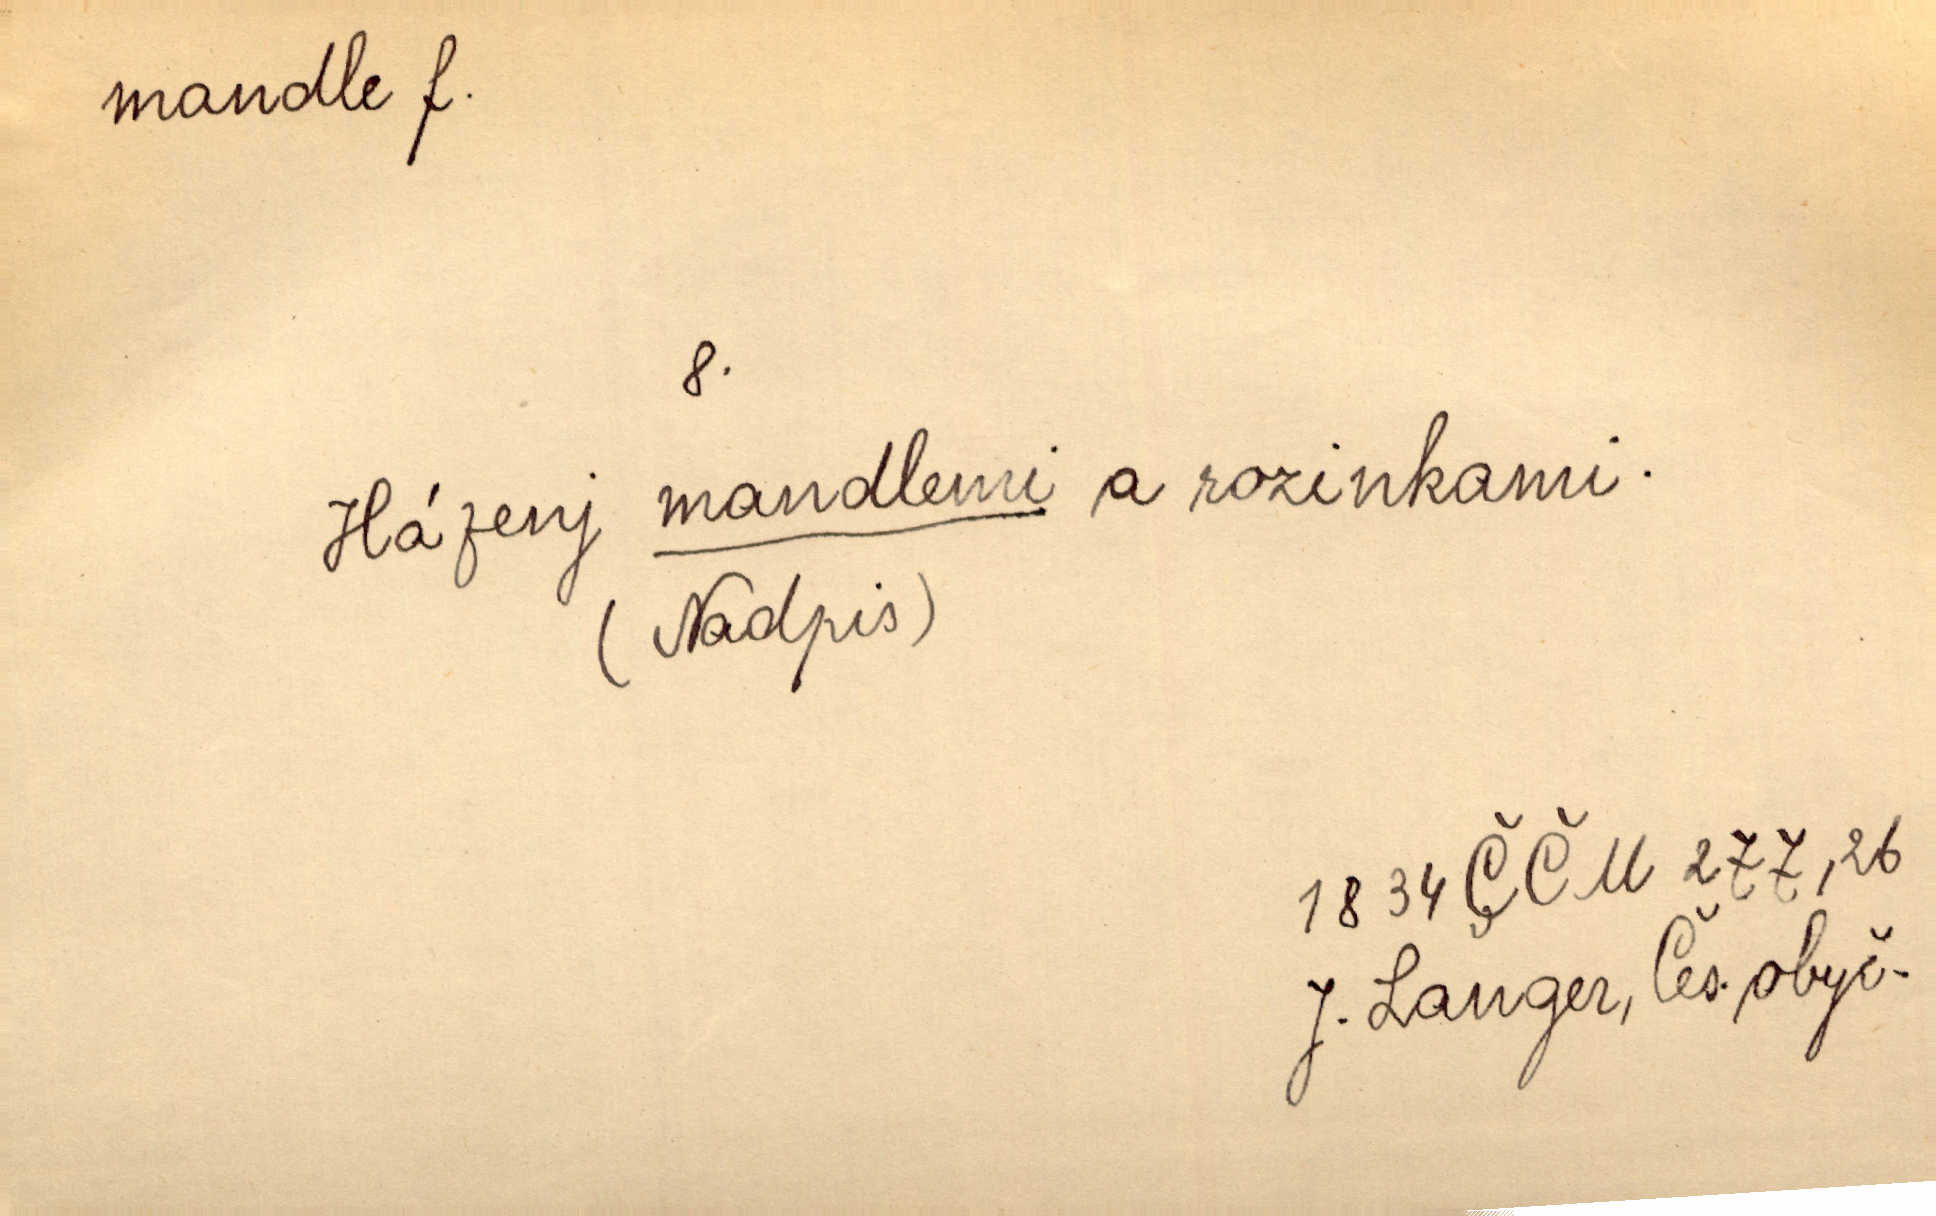 mandle f.
8.
Házenj mandlemi a rozinkami.
(Nadpis)
1834 ČČM 277,26
J. Langer, Čes. obyč.